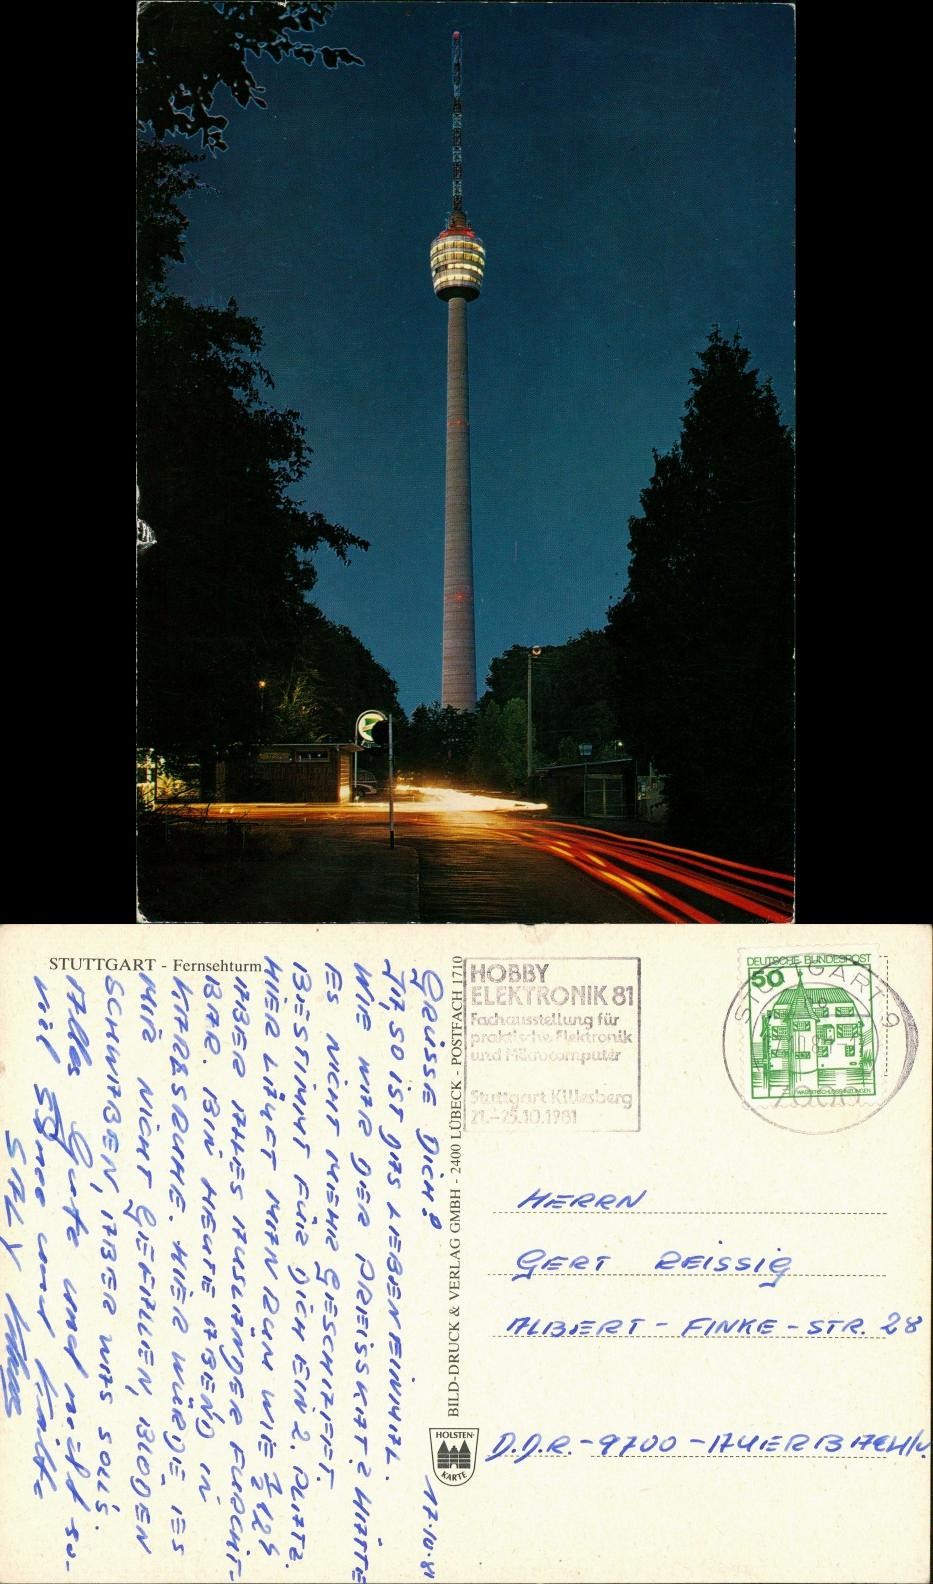 STUTTGART - Fernsehturm
17.10.81
GRÜSSE DICH!
JA, SO IST DAS LEBEN EINMAL.
WIE WAR DER PREISSKAT? HÄTTE
ES NICHT MEHR GESCHAFFT.
BESTIMMT FÜR DICH EIN 2. PLATZ.
HIER LÄUFT MAN RUM WIE
ABER ALLES AUSLÄNDER FURCHT-
BAR. BIN HEUTE ABEND IN
KARLSRUHE. HIER WÜRDE ES
MIR NICHT GEFALLEN, BLODEN
SCHWABEN, ABER WAS SOLLS.
Alles Gute und nicht so-
viel Schnee und Kälte
BILD-DRUCK & VERLAG GMBH - 2400 LÜBECK - POSTFACH 1710
HOLSTEN-
KARTE
HOBBY
ELEKTRONIK 81
Fachausstellung für
praktische Elektronik
und Mikrocomputer
Stuttgart Killesberg
21.-25.10.1981
DEUTSCHE BUNDESPOST
50
WASSERSCHLOSS INZLINGEN
STUTTGART 9
HERRN
GERT REISSIG
ALBERT - FINKE - STR. 28
D.D.R. - 9700 - AUERBACH/V.